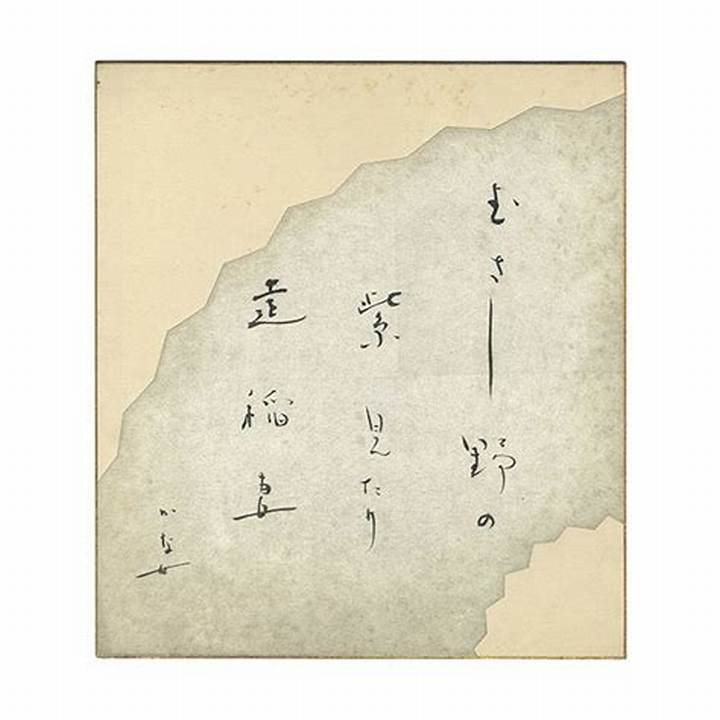 むさし野の
紫見たり
遠稲妻
かな女